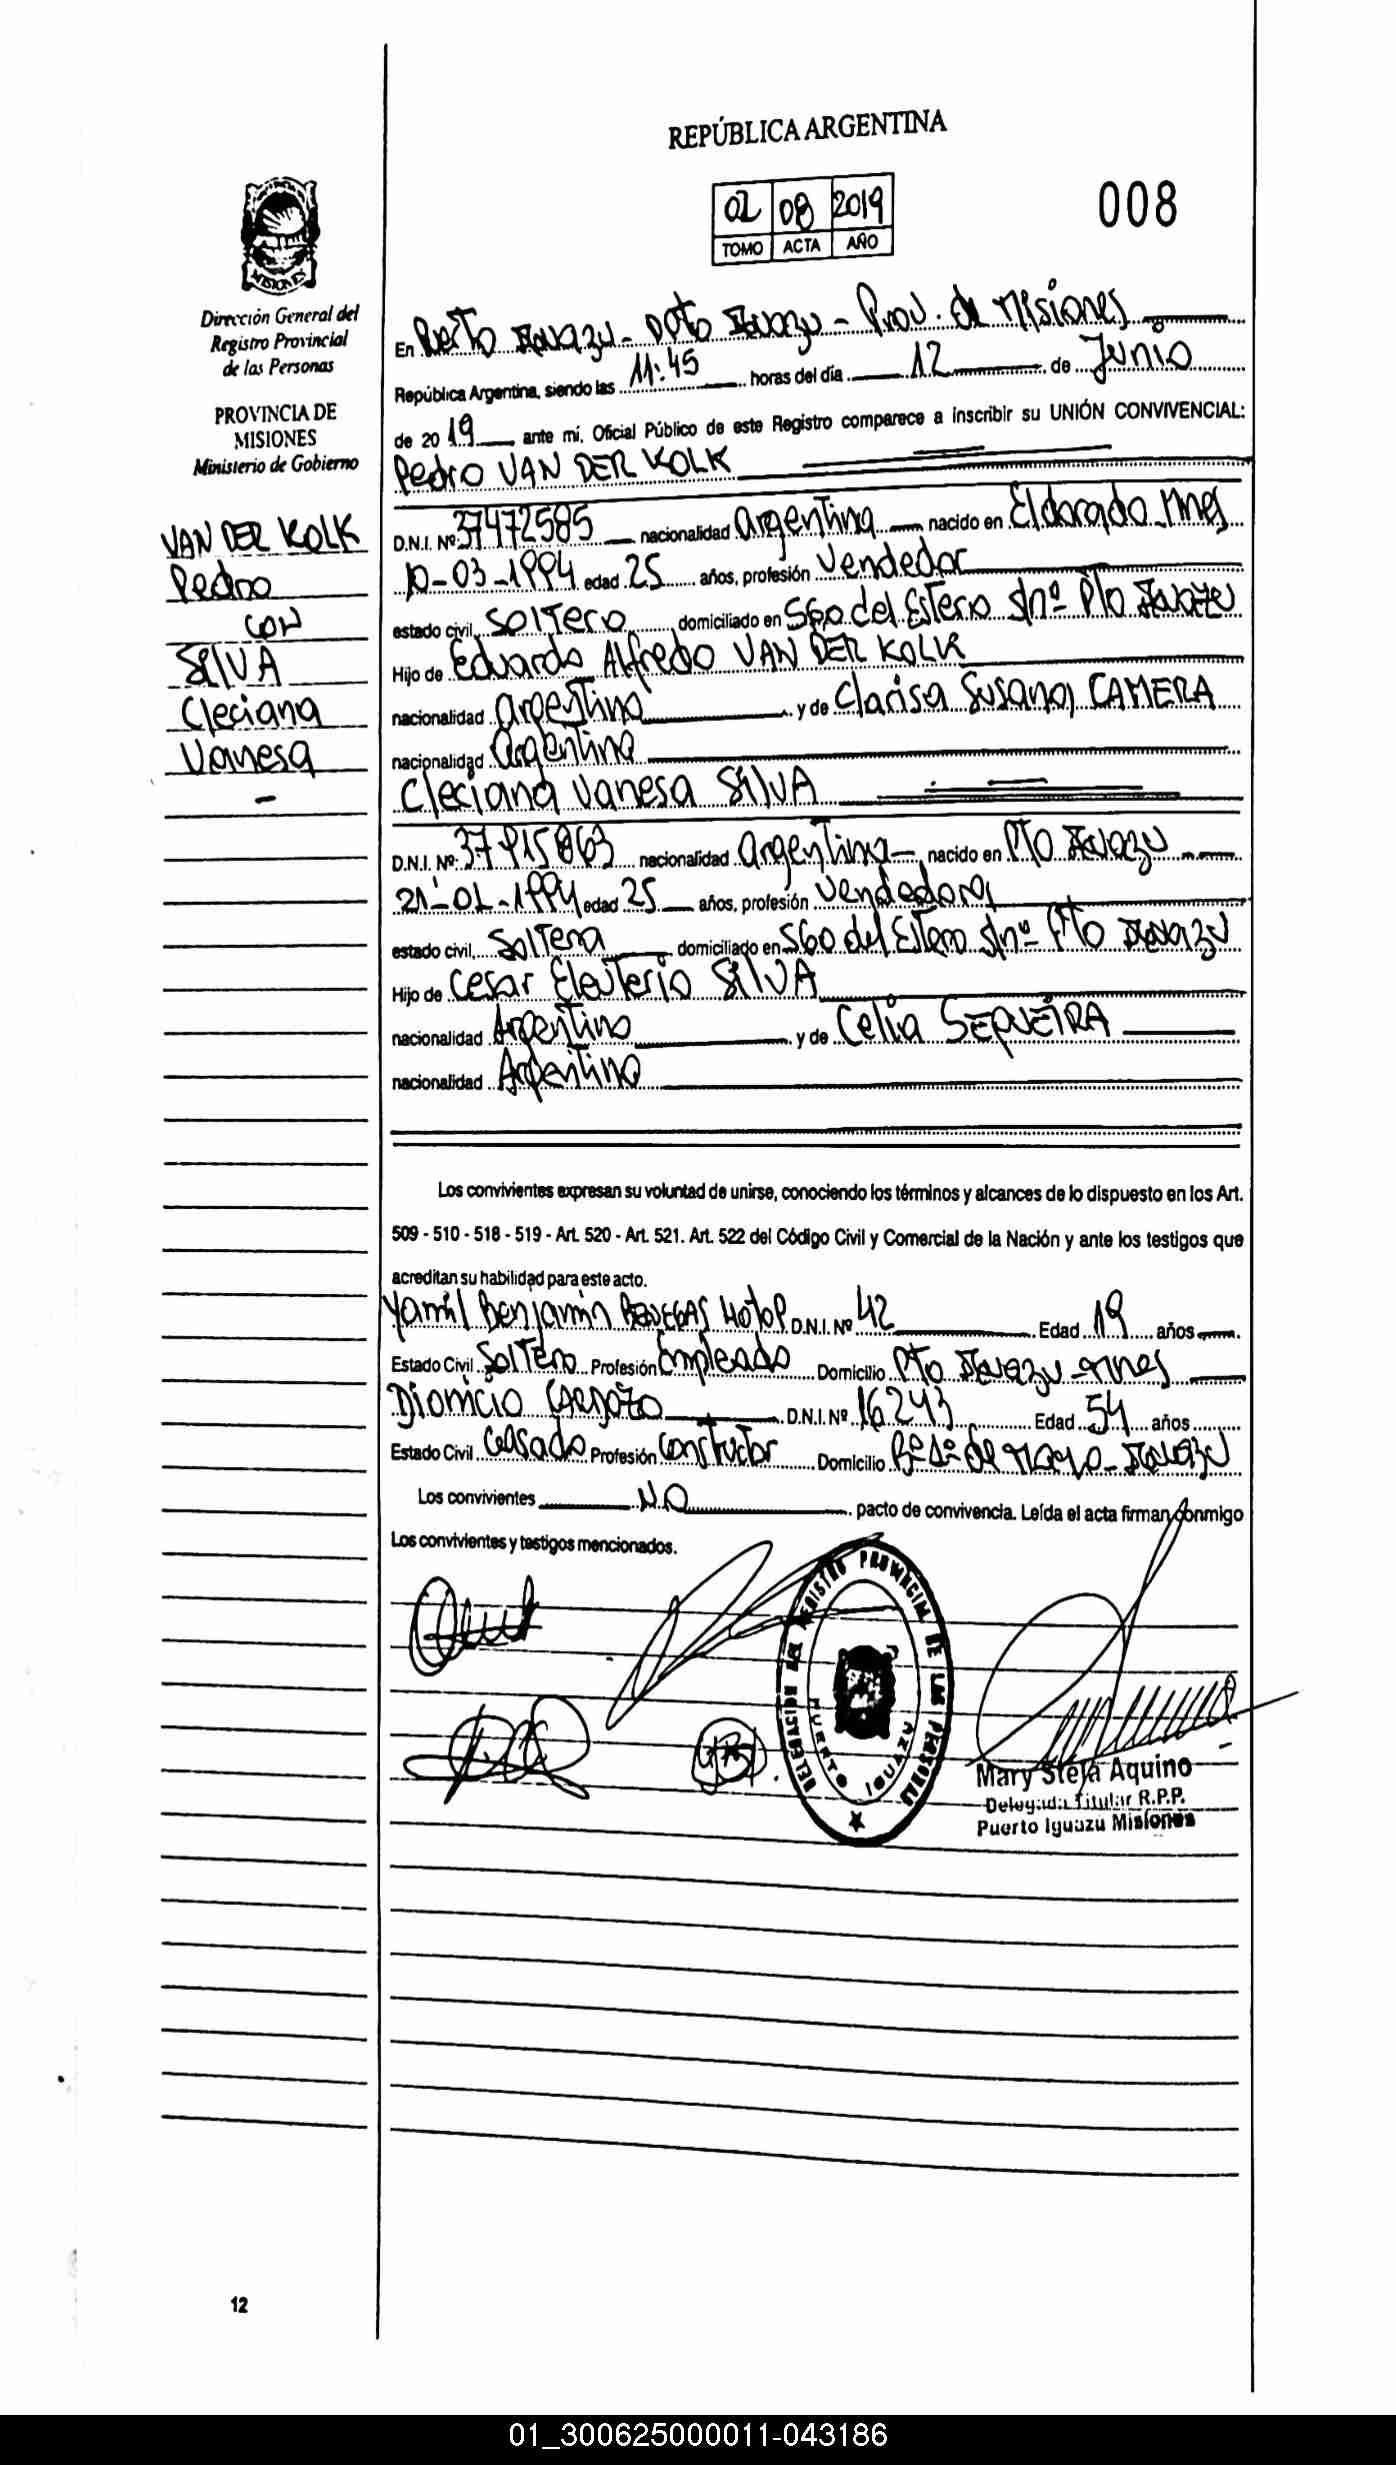 REPÚBLICA ARGENTINA
02 08 2019
TOMO ACTA AÑO
008
MISIONES
Dirección General del
Registro Provincial
de las Personas
PROVINCIA DE
MISIONES
Ministerio de Gobierno
VAN DER KOLK
Pedro
CON
SILVA
Cleciana
Vanesa
-
En Puerto Iguazu - Dpto Iguazu - Prov. de Misiones
República Argentina, siendo las 11:45 horas del día 12 de Junio
de 2019 ante mí, Oficial Público de este Registro comparece a inscribir su UNIÓN CONVIVENCIAL:
Pedro VAN DER KOLK
D.N.I. Nº 37472585 nacionalidad Argentina nacido en Eldorado Mnes
10-03-1994 edad 25 años, profesión Vendedor
estado civil Soltero domiciliado en Sgo del Estero s/nº Pto Iguazu
Hijo de Eduardo Alfredo VAN DER KOLK
nacionalidad Argentino y de Clarisa Susana CAMERA
nacionalidad Argentina
Cleciana Vanesa SILVA
D.N.I. Nº: 37915863 nacionalidad Argentina nacido en Pto Iguazu
21-01-1994 edad 25 años, profesión Vendedora
estado civil Soltera domiciliado en Sgo del Estero s/nº Pto Iguazu
Hijo de Cesar Eleuterio SILVA
nacionalidad Argentino y de Celia SEQUEIRA
nacionalidad Argentina
Los convivientes expresan su voluntad de unirse, conociendo los términos y alcances de lo dispuesto en los Art.
509 - 510 - 518 - 519 - Art. 520 - Art. 521. Art. 522 del Código Civil y Comercial de la Nación y ante los testigos que
acreditan su habilidad para este acto.
Yamil Benjamin D.N.I. Nº 42 Edad 19 años
Estado Civil Soltero Profesión Empleado Domicilio Pto Iguazu - Mnes
Dionicio D.N.I. Nº 16243 Edad 54 años
Estado Civil Casado Profesión Constructor Domicilio Bº 1º de Mayo - Iguazu
Los convivientes NO pacto de convivencia. Leída el acta firman conmigo
Los convivientes y testigos mencionados.
DELEGACION DEL REGISTRO PROVINCIAL DE LAS PERSONAS
PUERTO IGUAZU
Mary Stela Aquino
Delegada Titular R.P.P.
Puerto Iguazú Misiones
12
01_300625000011-043186